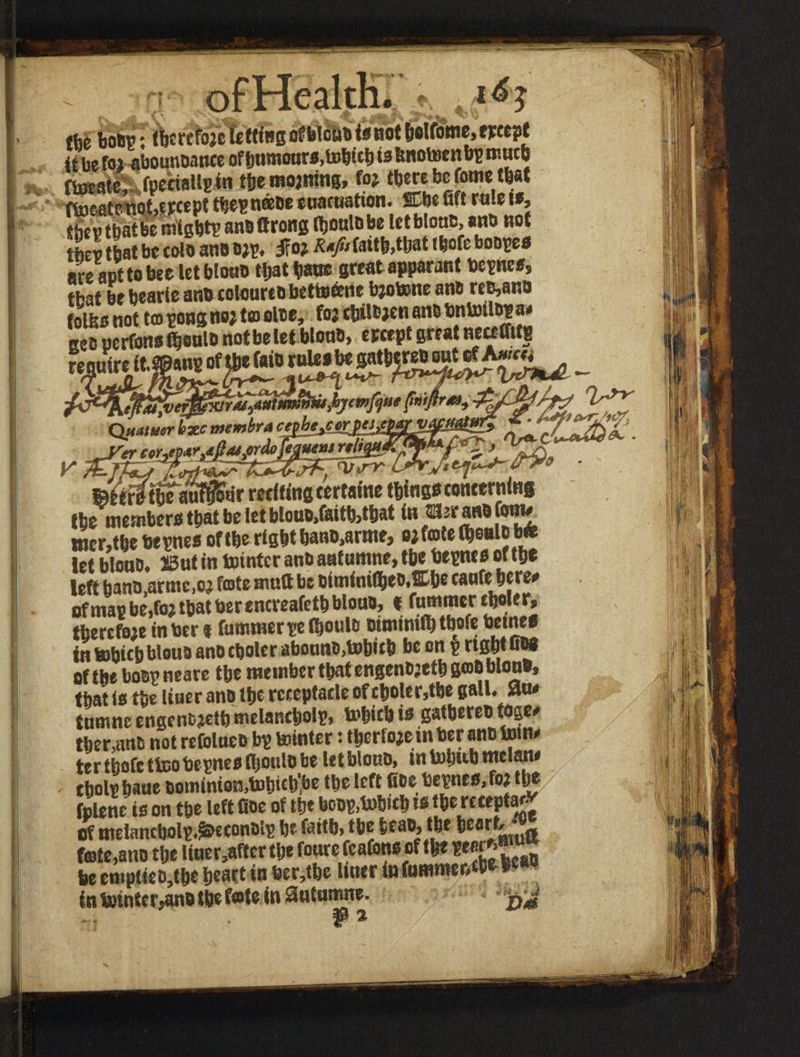 of Health. 163
the body: therefore letting of bloud is not holsome, except
it be for aboundance of humours, which is knowen by much
sweate, specially in the morning, for there be some that
sweate not, except they néede euacuation. The fift rule is,
they that be mighty and strong should be let bloud, and not
they that be cold and dry. For Rasis saith, that those bodyes
are apt to bee let bloud that haue great apparant veynes,
that be hearie and coloured betwéene browne and red, and
folks not too yong nor too olde, for children and vnwildy a-
ged persons should not be let bloud, except great necessity
require it. Many of the said rules be gathered out of
Æstas, ver dextras, autumnus, hyemsque sinistras,
Quatuor hæc membra cephe, cor pes, epar vacuatur,
Ver cor, epar, æstas, ordo sequens
Héere the author reciting certaine things concerning
the members that be let bloud, saith, that in Ver and som-
mer, the veynes of the right hand, arme, or foote should bée
let bloud. But in winter and autumne, the veynes of the
left hand, arme, or foote must be diminished. The cause here-
of may be, for that Ver encreaseth bloud, & summer choler,
therefore in Ver & summer ye should diminish those veines
in which bloud and choler abound, which be on yͤ right side
of the body neare the member that engendreth good bloud,
that is the liuer and the receptacle of choler, the gall. Au-
tumne engendreth melancholy, which is gathered toge-
ther, and not resolued by winter: therfore in Ver and win-
ter those two veynes should be let bloud, in which melan-
choly haue dominion, which be the left side veynes, for the
splene is on the left side of the body, which is the receptacle
of melancholy. Secondly he saith, the head, the heart, the
foote, and the liuer, after the foure seasons of the yeer, must
be emptied, the heart in Ver, the liuer in summer, the head
in winter, and the foote in Autumne.
P 2